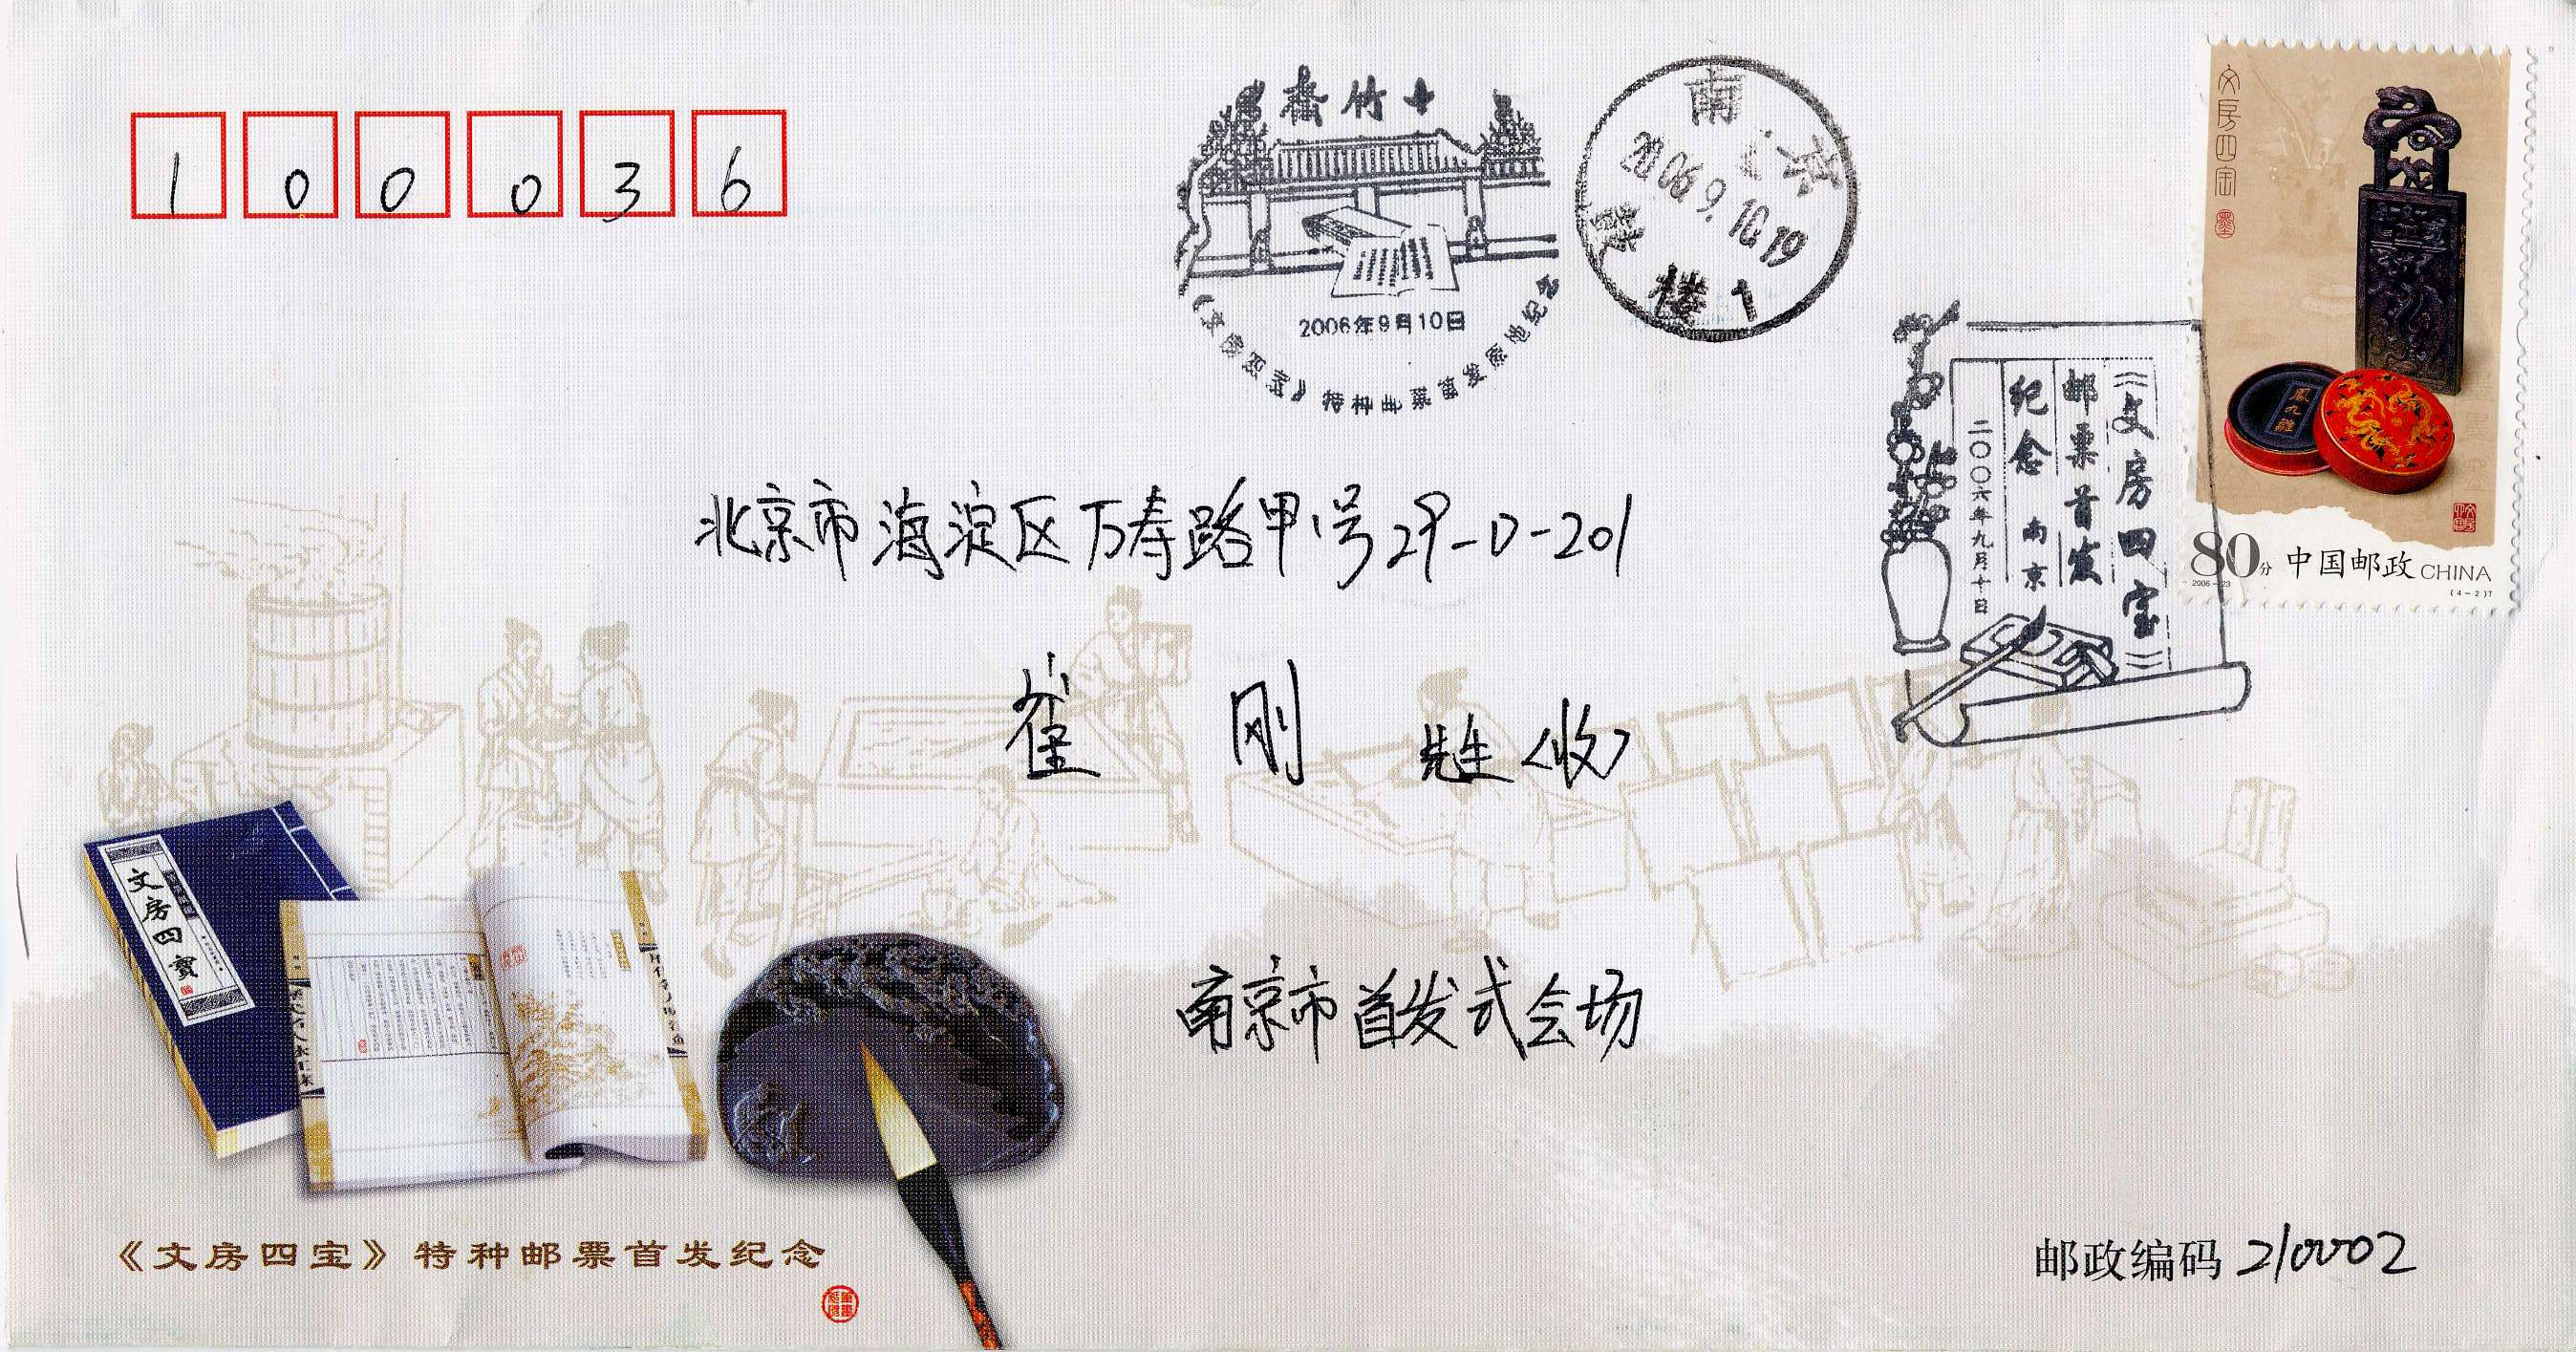 100036
十竹斋
2006年9月10日
《文房四宝》特种邮票首发原地纪念
南京
2006.9.10 19
鼓楼1
文房四宝
墨
80分 中国邮政 CHINA
2006-23
(4-2)T
《文房四宝》
邮票首发
纪念 南京
二〇〇六年九月十日
北京市海淀区万寿路甲1号29-D-201
崔刚先生<收>
文房四寳
南京市首发式会场
《文房四宝》特种邮票首发纪念
邮政编码 210002